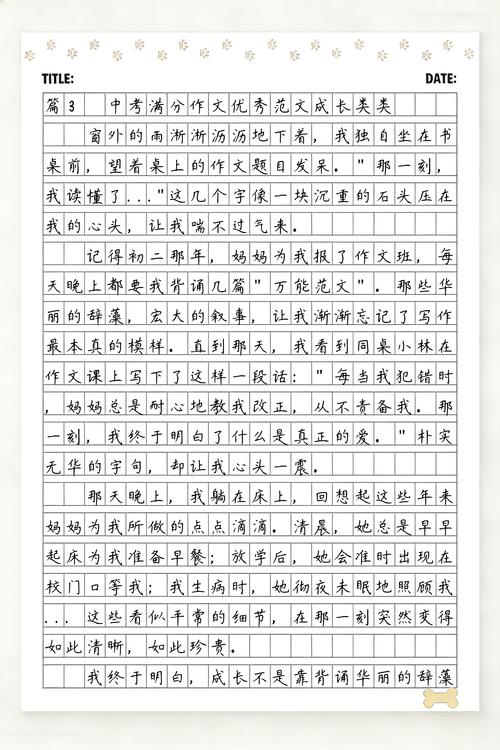 TITLE: DATE:
篇3 中考满分作文优秀范文成长类类
窗外的雨淅淅沥沥地下着，我独自坐在书
桌前，望着桌上的作文题目发呆。"那一刻，
我读懂了..."这几个字像一块沉重的石头压在
我的心头，让我喘不过气来。
记得初二那年，妈妈为我报了作文班，每
天晚上都要我背诵几篇"万能范文"。那些华
丽的辞藻，宏大的叙事，让我渐渐忘记了写作
最本真的模样。直到那天，我看到同桌小林在
作文课上写下了这样一段话："每当我犯错时
，妈妈总是耐心地教我改正，从不责备我。那
一刻，我终于明白了什么是真正的爱。"朴实
无华的字句，却让我心头一震。
那天晚上，我躺在床上，回想起这些年来
妈妈为我所做的点点滴滴。清晨，她总是早早
起床为我准备早餐；放学后，她会准时出现在
校门口等我；我生病时，她彻夜未眠地照顾我
...这些看似平常的细节，在那一刻突然变得
如此清晰，如此珍贵。
我终于明白，成长不是靠背诵华丽的辞藻